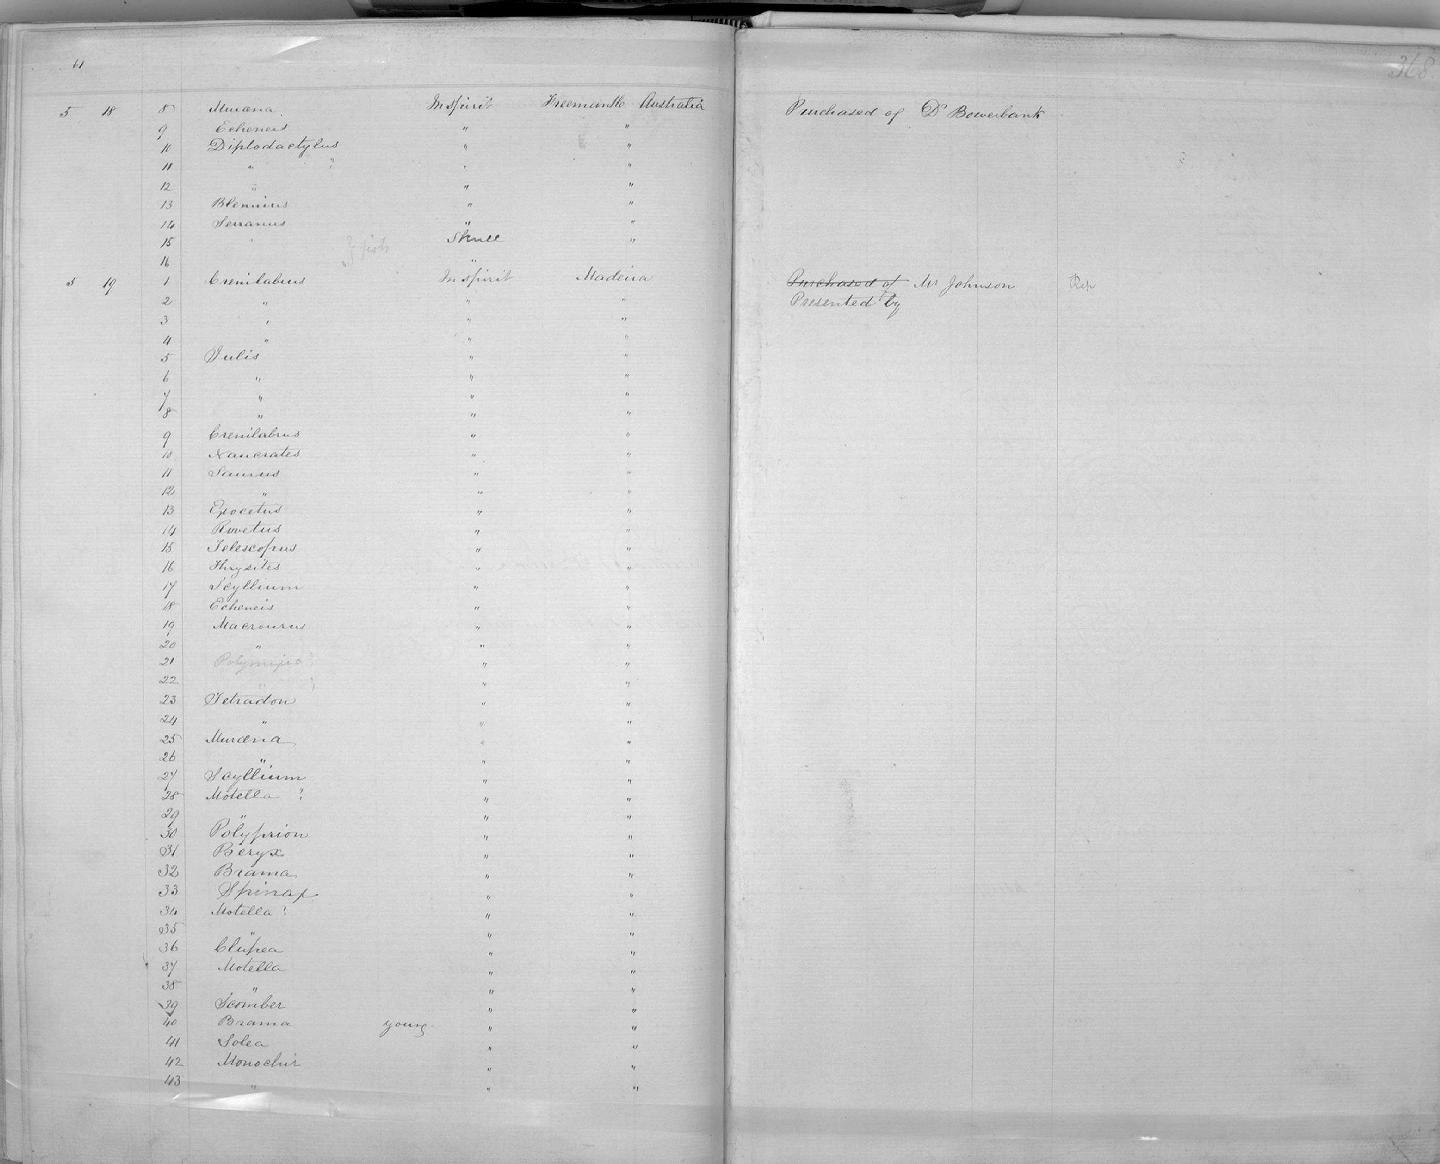 61
368
5 18 8 Muraena In spirit Freemantle Australia Purchased of Dr Bowerbank
9 Echeneis " "
10 Diplodactylus " "
11 " ? " "
12 " " "
13 Blennius " "
14 Serranus " "
15 " Skull "
16 "
5 19 1 Crenilabrus In spirit Madeira Purchased of Mr Johnson Rep
Presented by
2 " " "
3 " " "
4 " " "
5 Julis " "
6 " " "
7 " " "
8 " " "
9 Crenilabrus " "
10 Naucrates " "
11 Saurus " "
12 " " "
13 Exocetus " "
14 Ruvetus " "
15 Telescopus " "
16 Thrysites " "
17 Scyllium " "
18 Echeneis " "
19 Macrourus " "
20 " " "
21 " "
22 " ? " "
23 Tetradon " "
24 " " "
25 Muraena " "
26 " " "
27 Scyllium " "
28 Motella ? " "
29 " " "
30 Polyprion " "
31 Beryx " "
32 Brama " "
33 Spinax " "
34 Motella ? " "
35 " " "
36 Clupea " "
37 Motella " "
38 " " "
39 Scomber " "
40 Brama young " "
41 Solea " "
42 Monochir " "
43 " " "